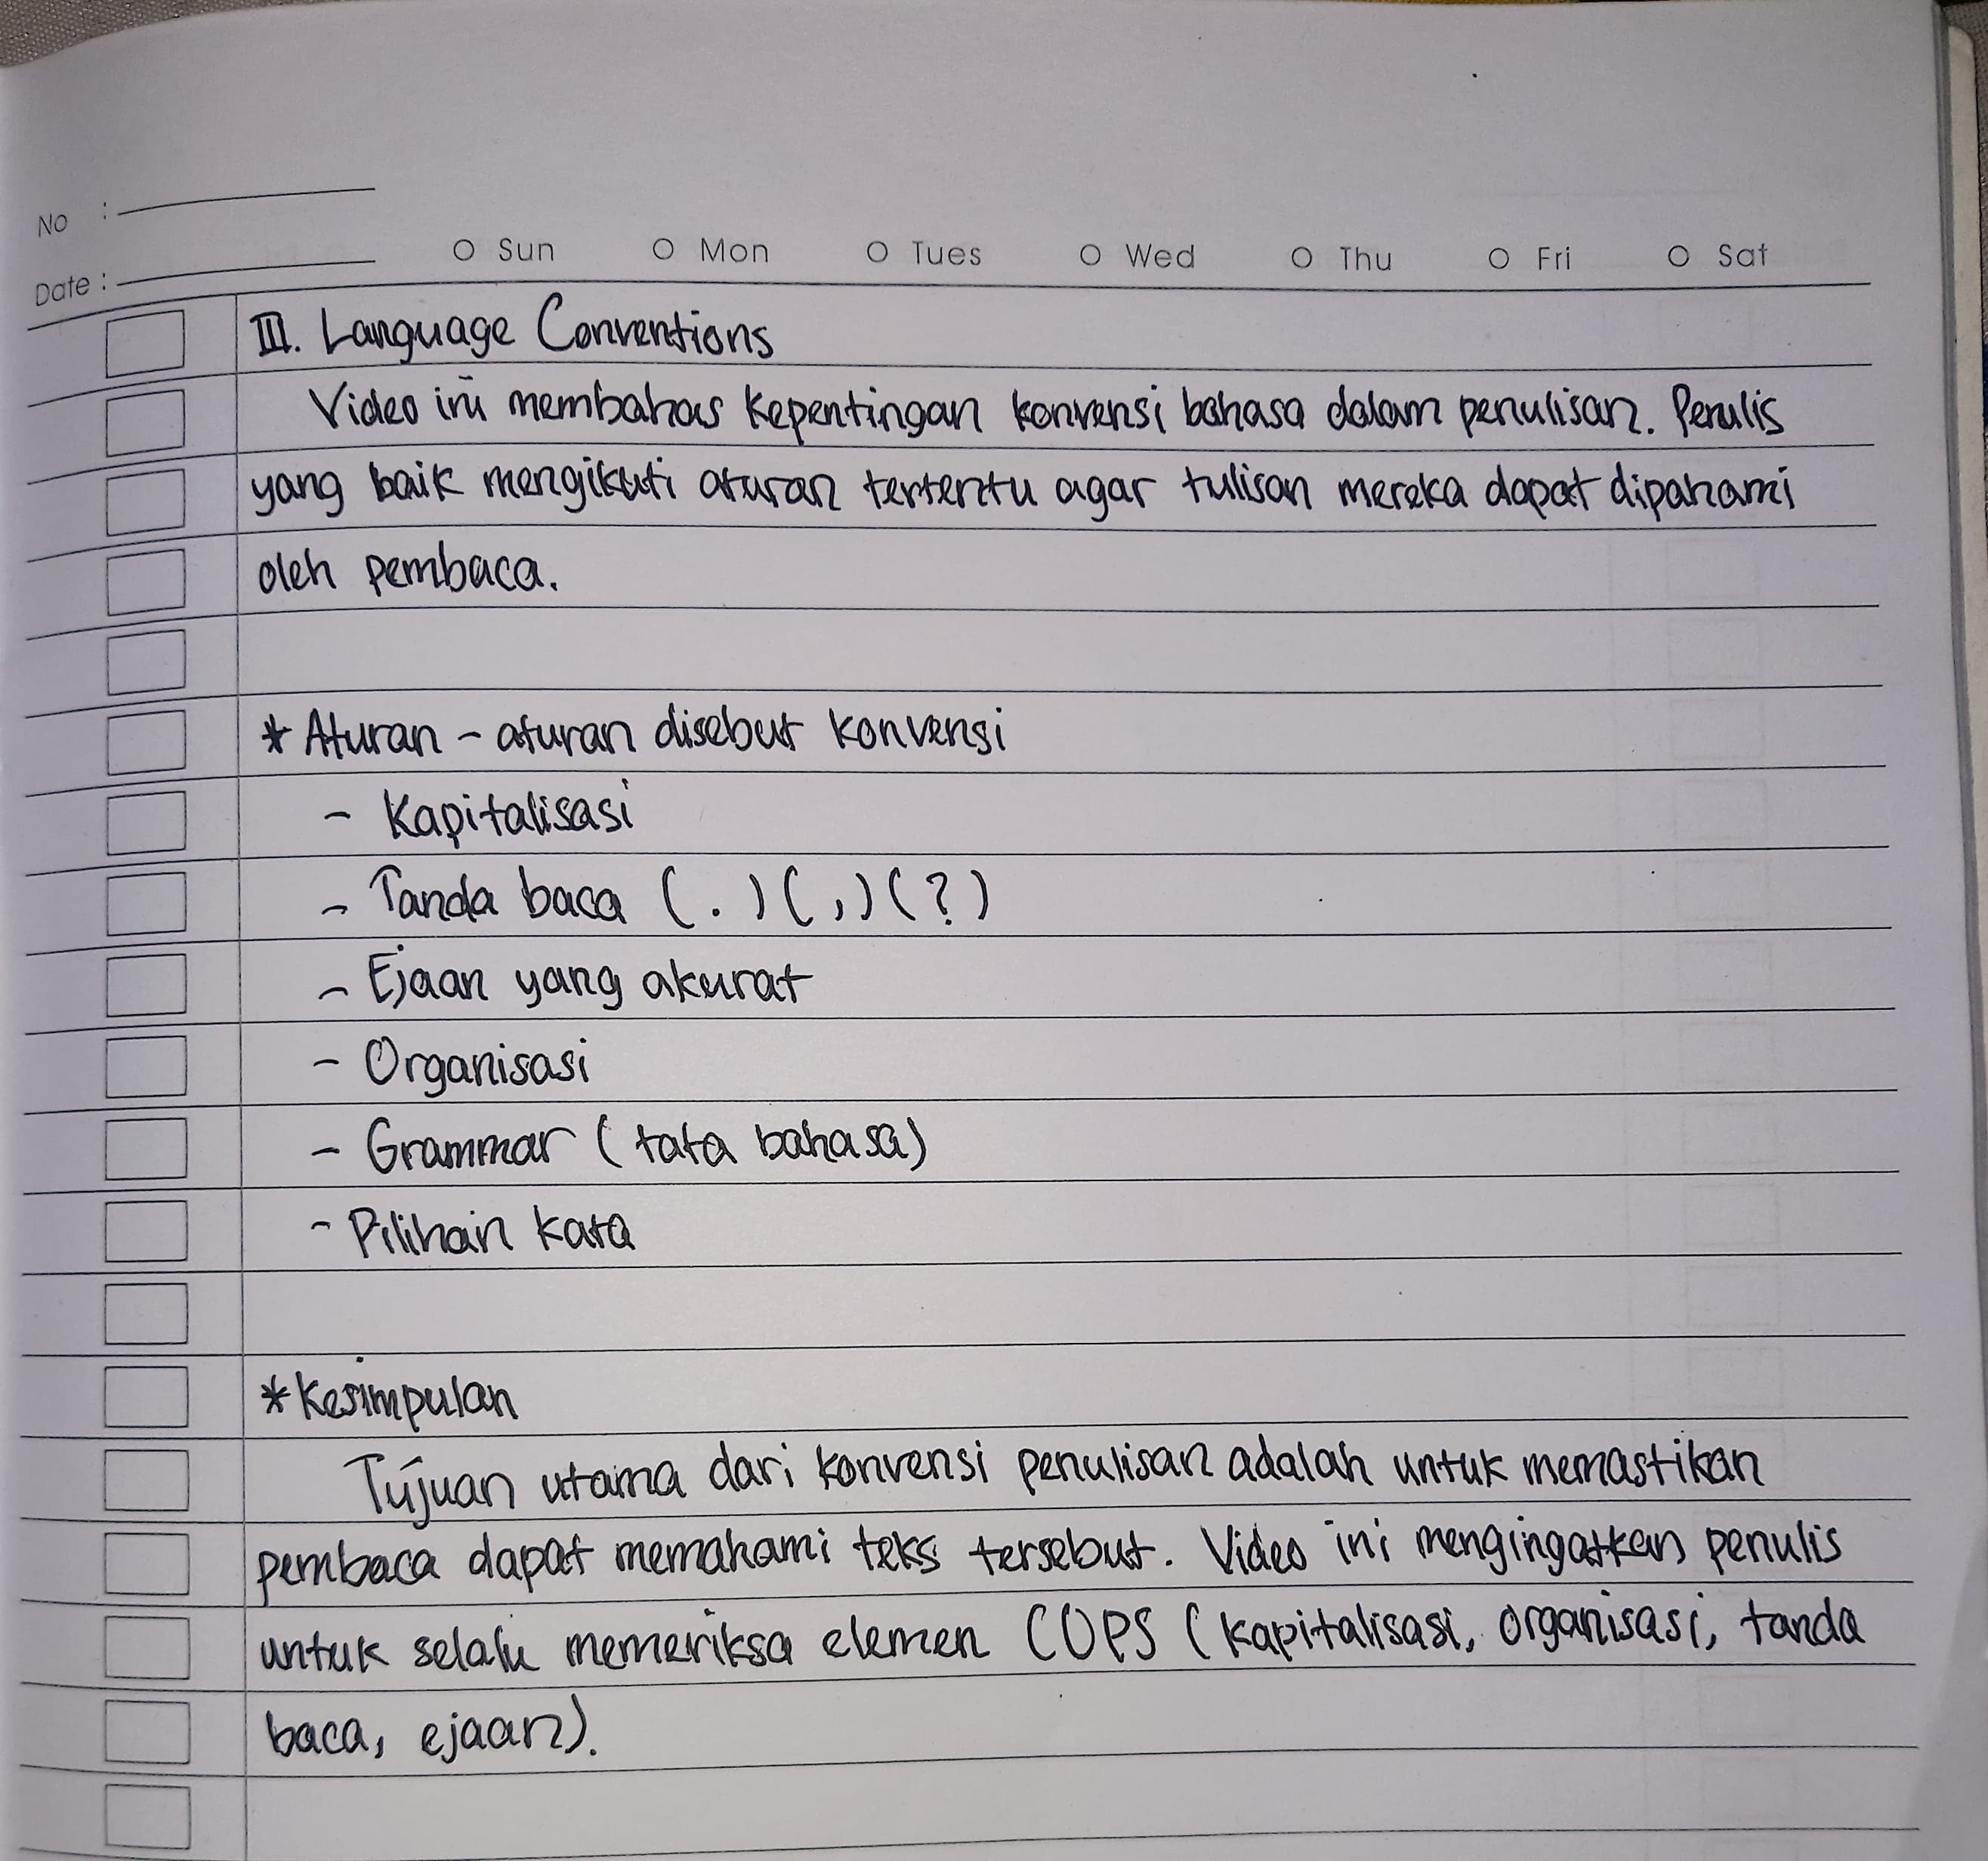 No :
Date :
O Sun O Mon O Tues O Wed O Thu O Fri O Sat
III. Language Conventions
Video ini membahas kepentingan konvensi bahasa dalam penulisan. Penulis
yang baik mengikuti aturan tertentu agar tulisan mereka dapat dipahami
oleh pembaca.
* Aturan - aturan disebut konvensi
- Kapitalisasi
- Tanda baca (.) (,) (?)
- Ejaan yang akurat
- Organisasi
- Grammar (tata bahasa)
- Pilihan kata
* Kesimpulan
Tujuan utama dari konvensi penulisan adalah untuk memastikan
pembaca dapat memahami teks tersebut. Video ini mengingatkan penulis
untuk selalu memeriksa elemen COPS (kapitalisasi, organisasi, tanda
baca, ejaan).